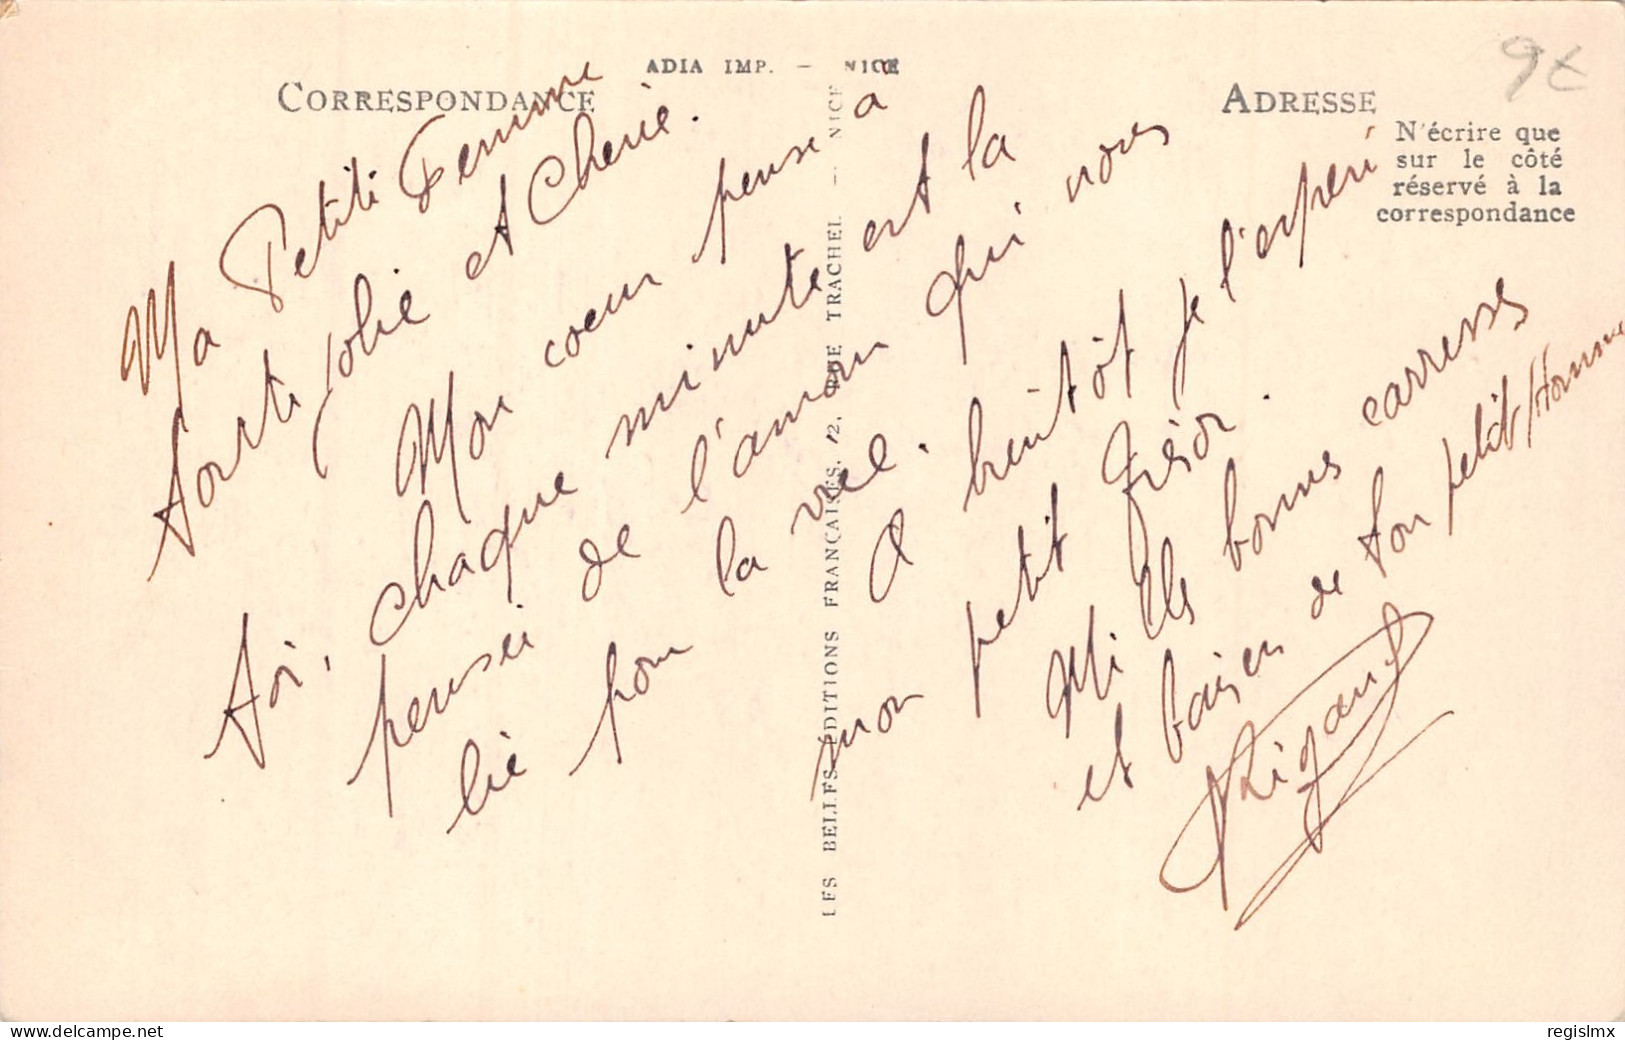 CORRESPONDANCE
ADIA IMP. — NICE
ADRESSE
N'écrire que
sur le côté
réservé à la
correspondance
9€
Ma Petite Femme
toute jolie et Cherie.
Mon coeur pense à
toi, chaque minute est la
pensée de l'amour qui nous
lie pour la vie.
A bientôt je l'espere
mon petit trésor.
Mille bonnes carresses
et baisers de ton petit Homme
Rigault
LES BELLES ÉDITIONS FRANÇAISES, 12, RUE TRACHEL — NICE
delcampe.net
regislmx